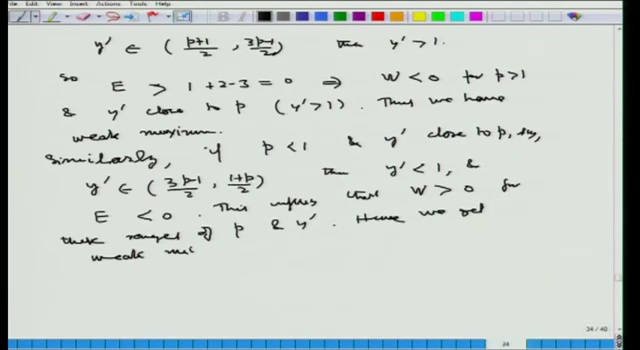 File View Insert Actions Tools Help
y' ∈ ( p+1/2 , 3p-1/2 ) then y' > 1.
So E > 1 + 2 - 3 = 0 ⇒ W < 0 for p > 1
& y' close to p ( y' > 1 ). Thus we have
weak maximum.
Similarly, if p < 1 & y' close to p, say,
y' ∈ ( 3p-1/2 , 1+p/2 ) then y' < 1, &
E < 0. This implies that W > 0 for
these ranges of p & y'. Hence we get
weak mi
34 / 40
34